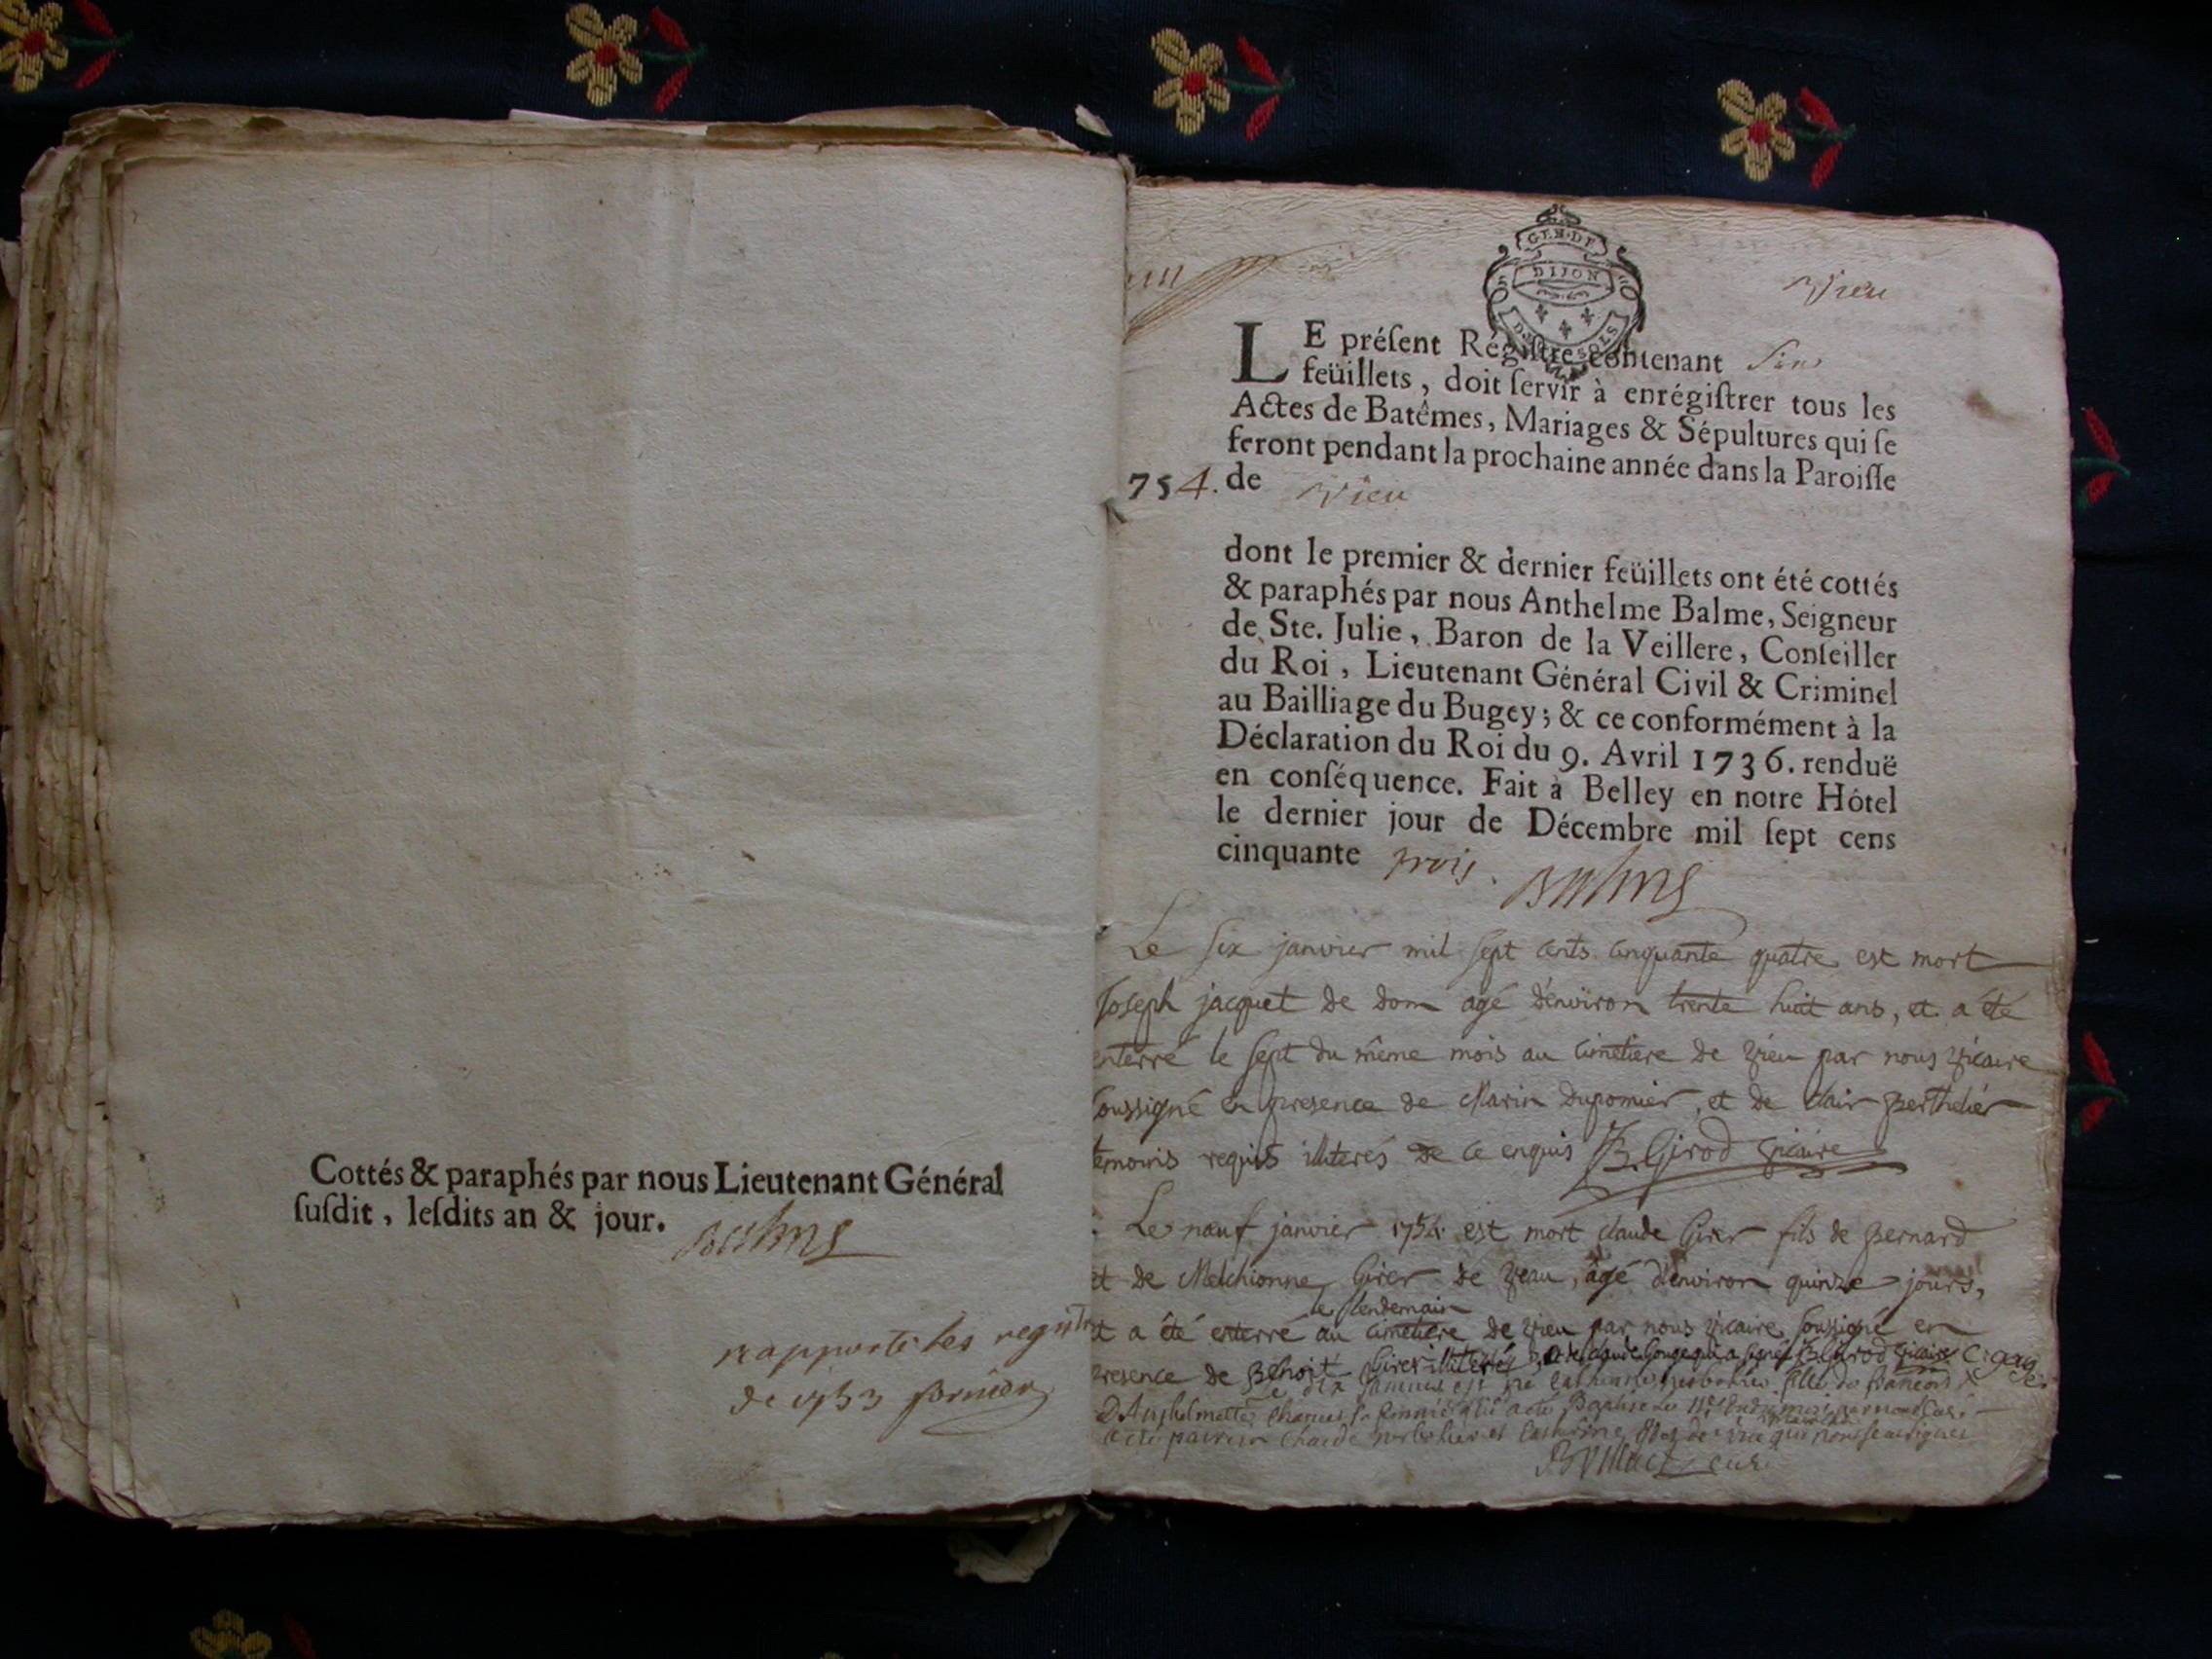 Cottés & paraphés par nous Lieutenant Général
ſuſdit, leſdits an & jour.
Balme
rapporté les registr
de 1753
GEN·DE
DIJON
Vieu
LE préſent Régiſtre contenant
feüillets, doit ſervir à enrégiſtrer tous les
Actes de Batêmes, Mariages & Sépultures qui ſe
feront pendant la prochaine année dans la Paroiſſe
754. de Vieu
dont le premier & dernier feüillets ont été cottés
& paraphés par nous Anthelme Balme, Seigneur
de Ste. Julie, Baron de la Veillere, Conſeiller
du Roi, Lieutenant Général Civil & Criminel
au Bailliage du Bugey; & ce conformément à la
Déclaration du Roi du 9. Avril 1736. renduë
en conſéquence. Fait à Belley en notre Hôtel
le dernier jour de Décembre mil ſept cens
cinquante trois. Balme
Le six janvier mil sept cents cinquante quatre est mort
Joseph jacquet de dom agé d'environ trente huit ans, et a été
enterré le sept du même mois au cimetiere de vieu par nous vicaire
soussigné en presence de Marin Dupomier, et de clair Berthelier
temoins requis illiterés de ce enquis JB Girod vicaire
Le neuf janvier 1754 est mort claude Girer fils de Bernard
et de Melchionne Girer de vieu, âgé d'environ quinze jours,
le lendemain
et a été enterré au cimetiere de vieu par nous vicaire soussigné en
presence de Benoit Girer illiteré, et de claude Gouge qui a signé JB Girod vicaire C: Gouge
Le dix janvier est né fille de
D'Anthelmette a été Baptisé
a été parrein Claude et
curé